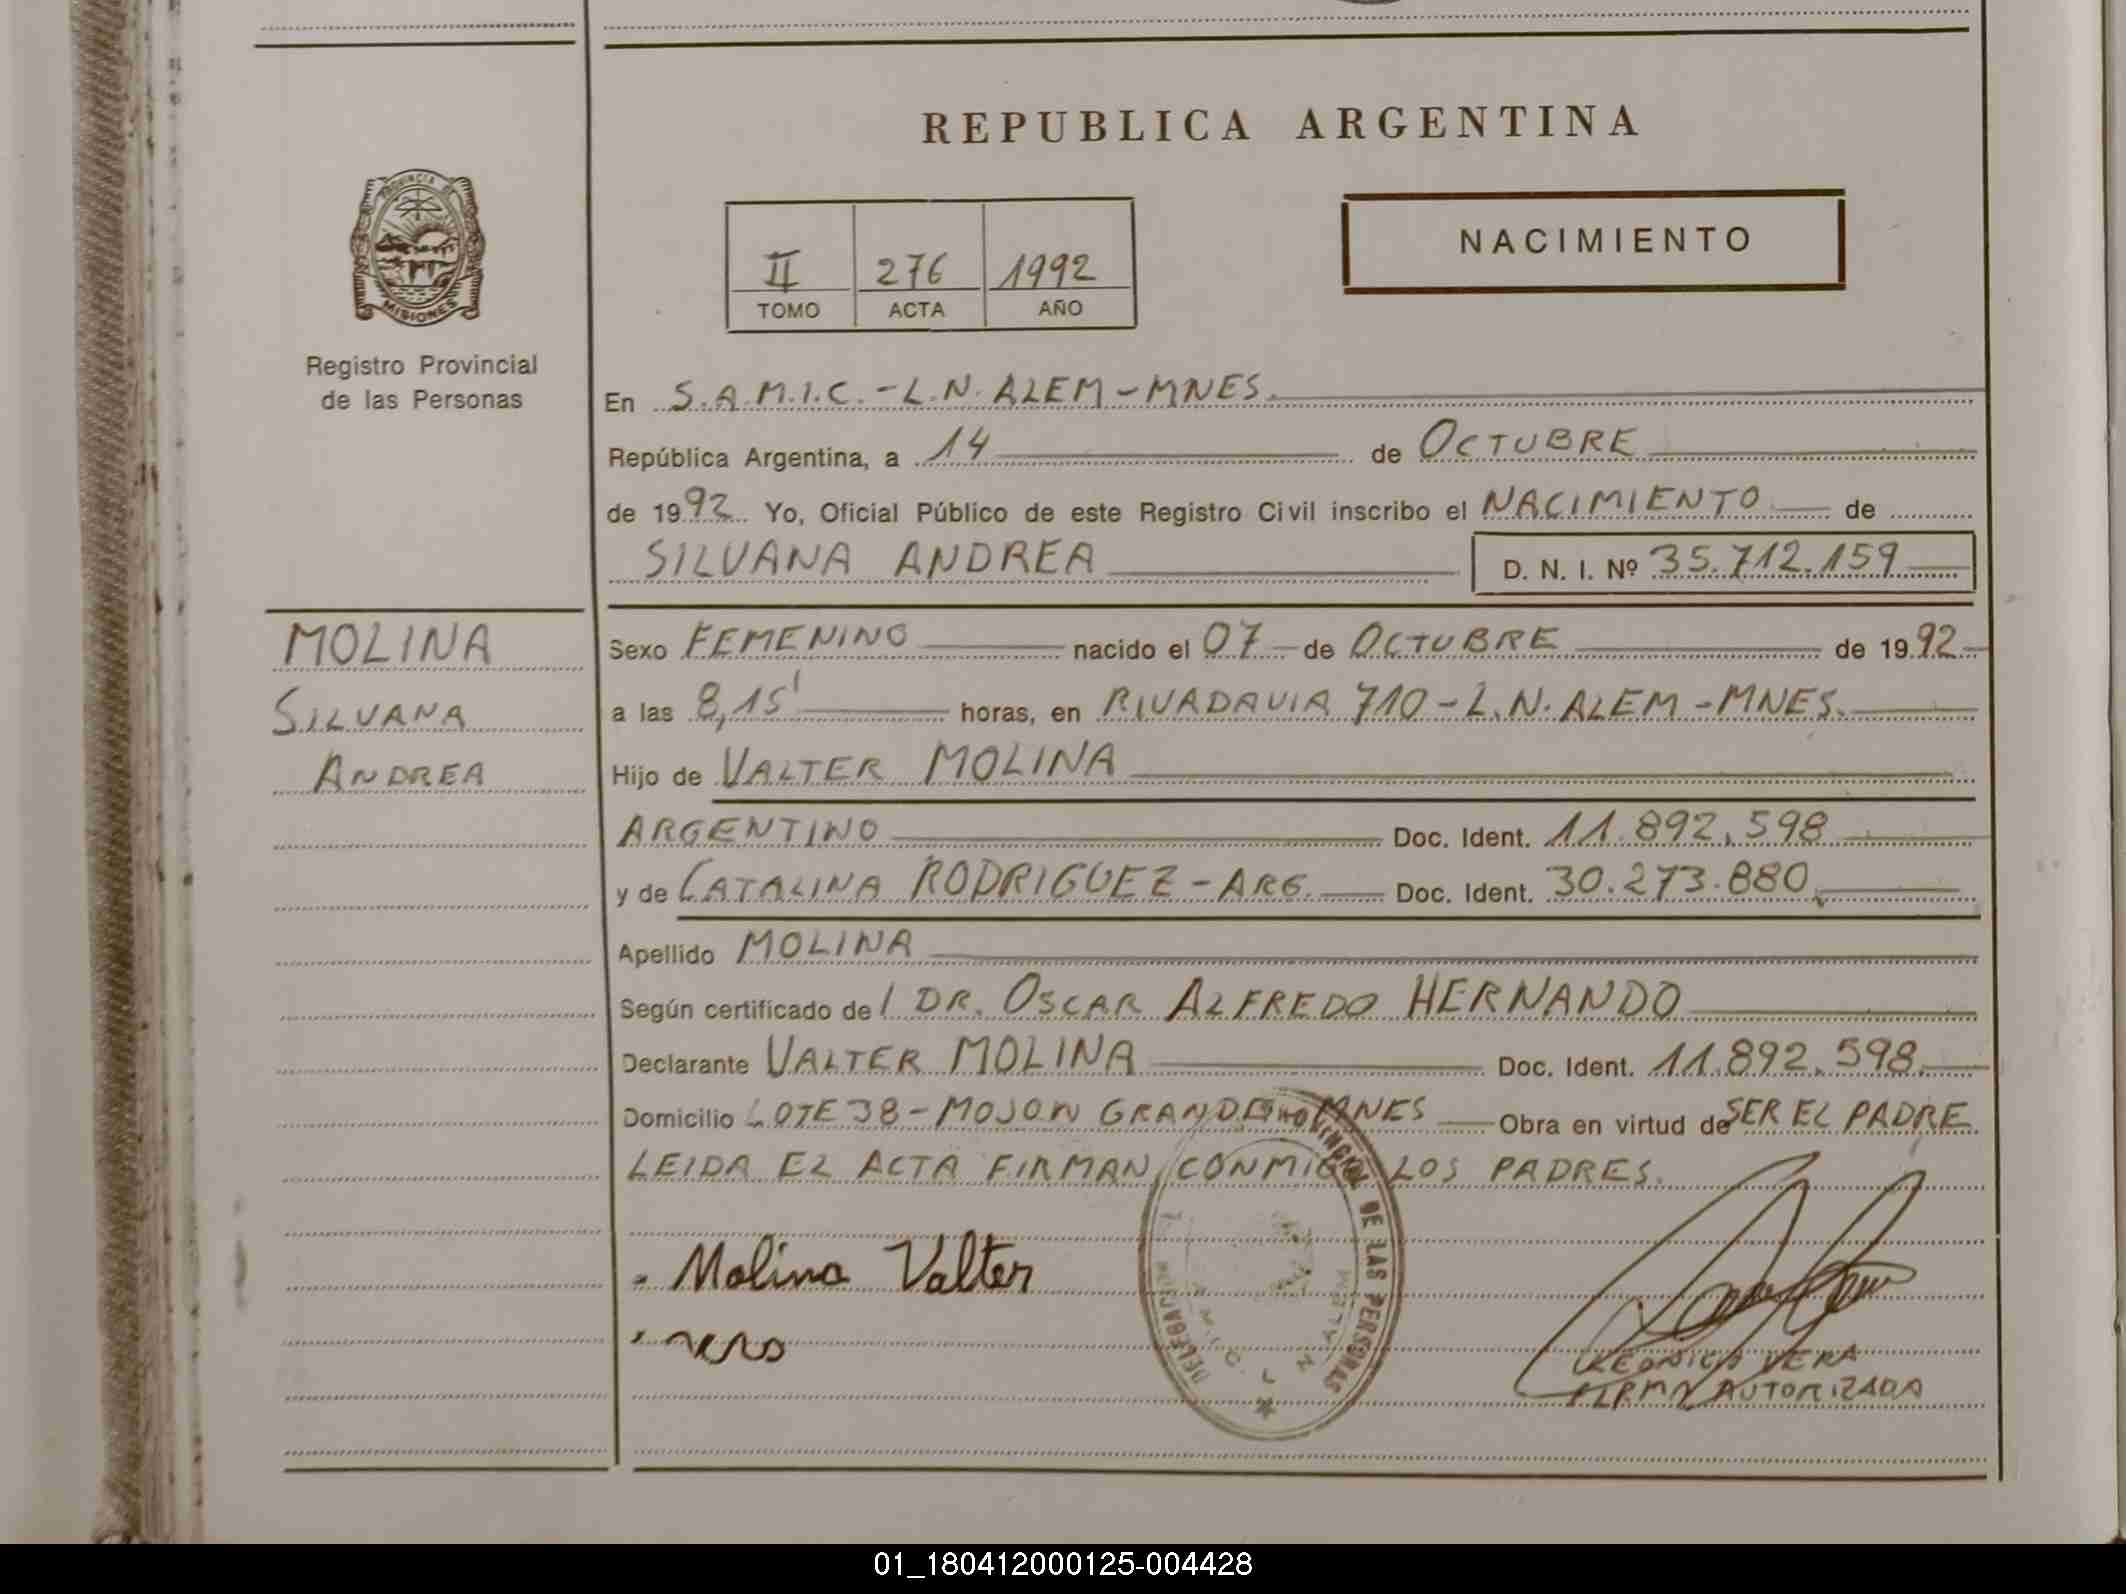 REPUBLICA ARGENTINA
PROVINCIA DE
MISIONES
Registro Provincial
de las Personas
II 276 1992
TOMO ACTA AÑO
NACIMIENTO
En S.A.M.I.C. - L.N. ALEM - MNES.
República Argentina, a 14 de OCTUBRE
de 1992 Yo, Oficial Público de este Registro Civil inscribo el NACIMIENTO de
SILVANA ANDREA D. N. I. Nº 35.712.159
MOLINA
SILVANA
ANDREA
Sexo FEMENINO nacido el 07 de OCTUBRE de 1992
a las 8,15' horas, en RIVADAVIA 710 - L.N. ALEM - MNES.
Hijo de VALTER MOLINA
ARGENTINO Doc. Ident. 11.892.598
y de CATALINA RODRIGUEZ - ARG. Doc. Ident. 30.273.880
Apellido MOLINA
Según certificado de l DR. OSCAR ALFREDO HERNANDO
Declarante VALTER MOLINA Doc. Ident. 11.892.598.
Domicilio LOTE 38 - MOJON GRANDE MNES Obra en virtud de SER EL PADRE
LEIDA EL ACTA FIRMAN CONMIGO LOS PADRES.
Molina Valter
PROVINCIAL DE LAS PERSONAS
L N ALEM
VERA
FIRMA AUTORIZADA
01_180412000125-004428